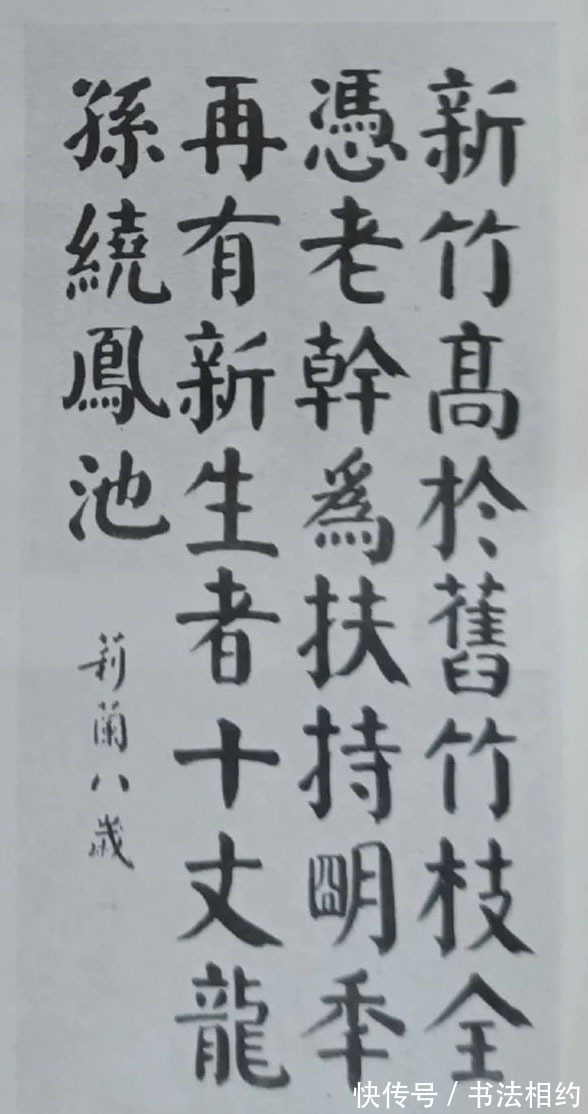 新竹高於舊竹枝全
憑老幹為扶持明年
再有新生者十丈龍
孫繞鳳池
莉蘭八歲
快传号 / 书法相约